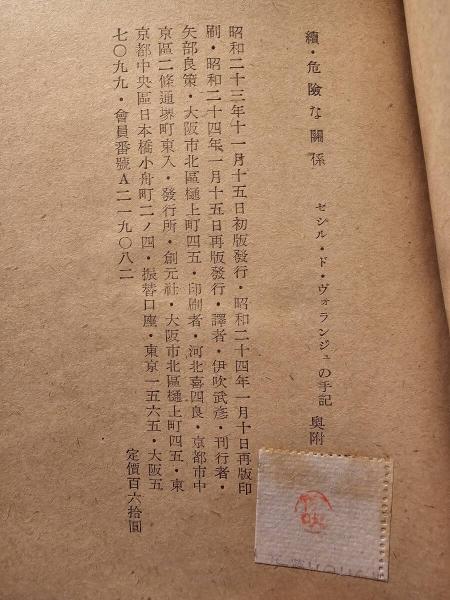 續・危險な關係　セシル・ド・ヴォランジュの手記　奥附
昭和二十三年十一月十五日初版發行・昭和二十四年一月十日再版印
刷・昭和二十四年一月十五日再版發行・譯者・伊吹武彦・刊行者・
矢部良策・大阪市北區樋上町四五・印刷者・河北喜四良・京都市中
京區二條通堺町東入・發行所・創元社・大阪市北區樋上町四五・東
京都中央區日本橋小舟町二ノ四・振替口座・東京一五六五・大阪五
七〇九九・會員番號A二一九〇八二
定價百六拾圓
伊吹